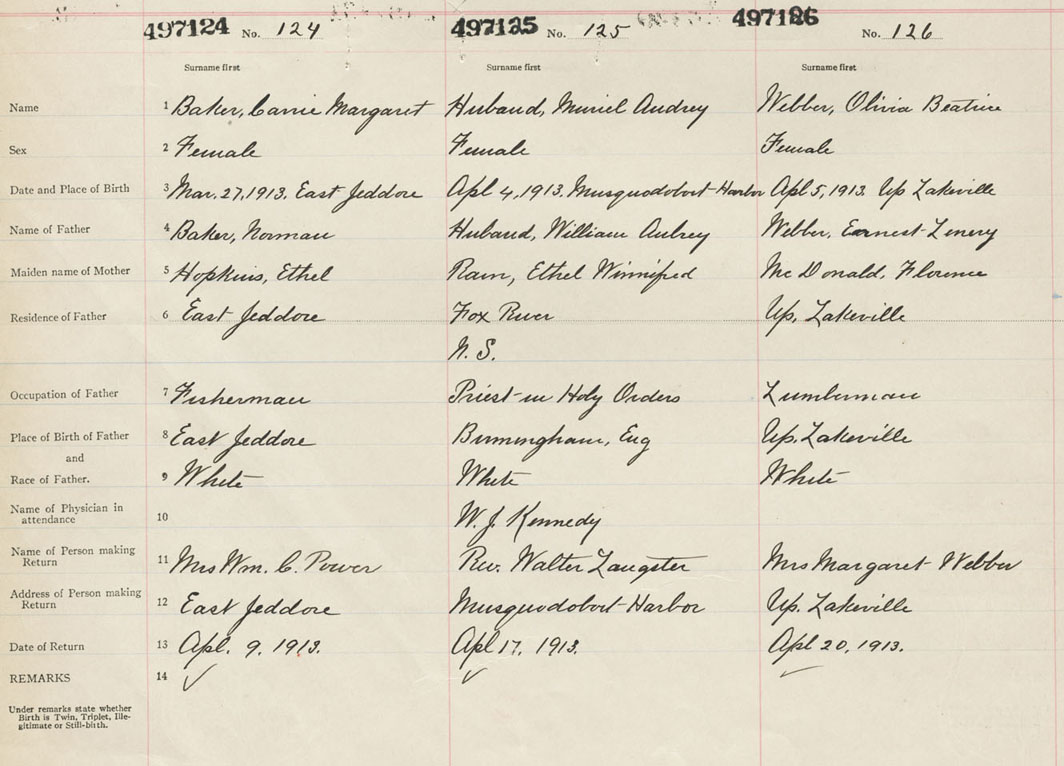 497124 No. 124 497125 No. 125 497126 No. 126
Surname first Surname first Surname first
Name 1 Baker, Carrie Margaret Huband, Muriel Audrey Webber, Olivia Beatrice
Sex 2 Female Female Female
Date and Place of Birth 3 Mar. 27, 1913. East Jeddore Apl 4, 1913. Musquodoboit Harbor Apl 5, 1913. Up Lakeville
Name of Father 4 Baker, Norman Huband, William Aubrey Webber, Earnest
Maiden name of Mother 5 Hopkins, Ethel Ethel Winnifred Mc Donald, Florence
Residence of Father 6 East Jeddore Fox River Up. Lakeville
N. S.
Occupation of Father 7 Fisherman Priest in Holy Orders Lumberman
Place of Birth of Father 8 East Jeddore Birmingham, Eng Up. Lakeville
and
Race of Father. 9 White White White
Name of Physician in attendance 10 W. J. Kennedy
Name of Person making Return 11 Mrs Wm. C. Power Rev. Walter Langster Mrs Margaret Webber
Address of Person making Return 12 East Jeddore Musquodoboit Harbor Up. Lakeville
Date of Return 13 Apl. 9. 1913. Apl 17, 1913. Apl 20, 1913.
REMARKS 14 ✓ ✓
Under remarks state whether
Birth is Twin, Triplet, Ille-
gitimate or Still-birth.